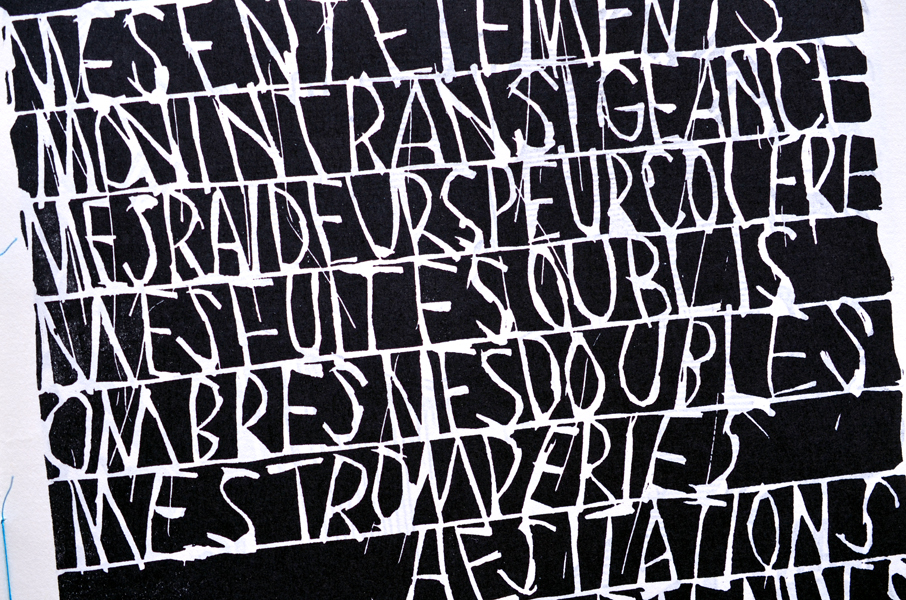 MES ENTETEMENTS
MON INTRANSIGEANCE
MES RAIDEURS PEUR COLERE
MES FUITES OUBLIS
OMBRES MES DOUBLES
MES TROMPERIES
HESITATIONS